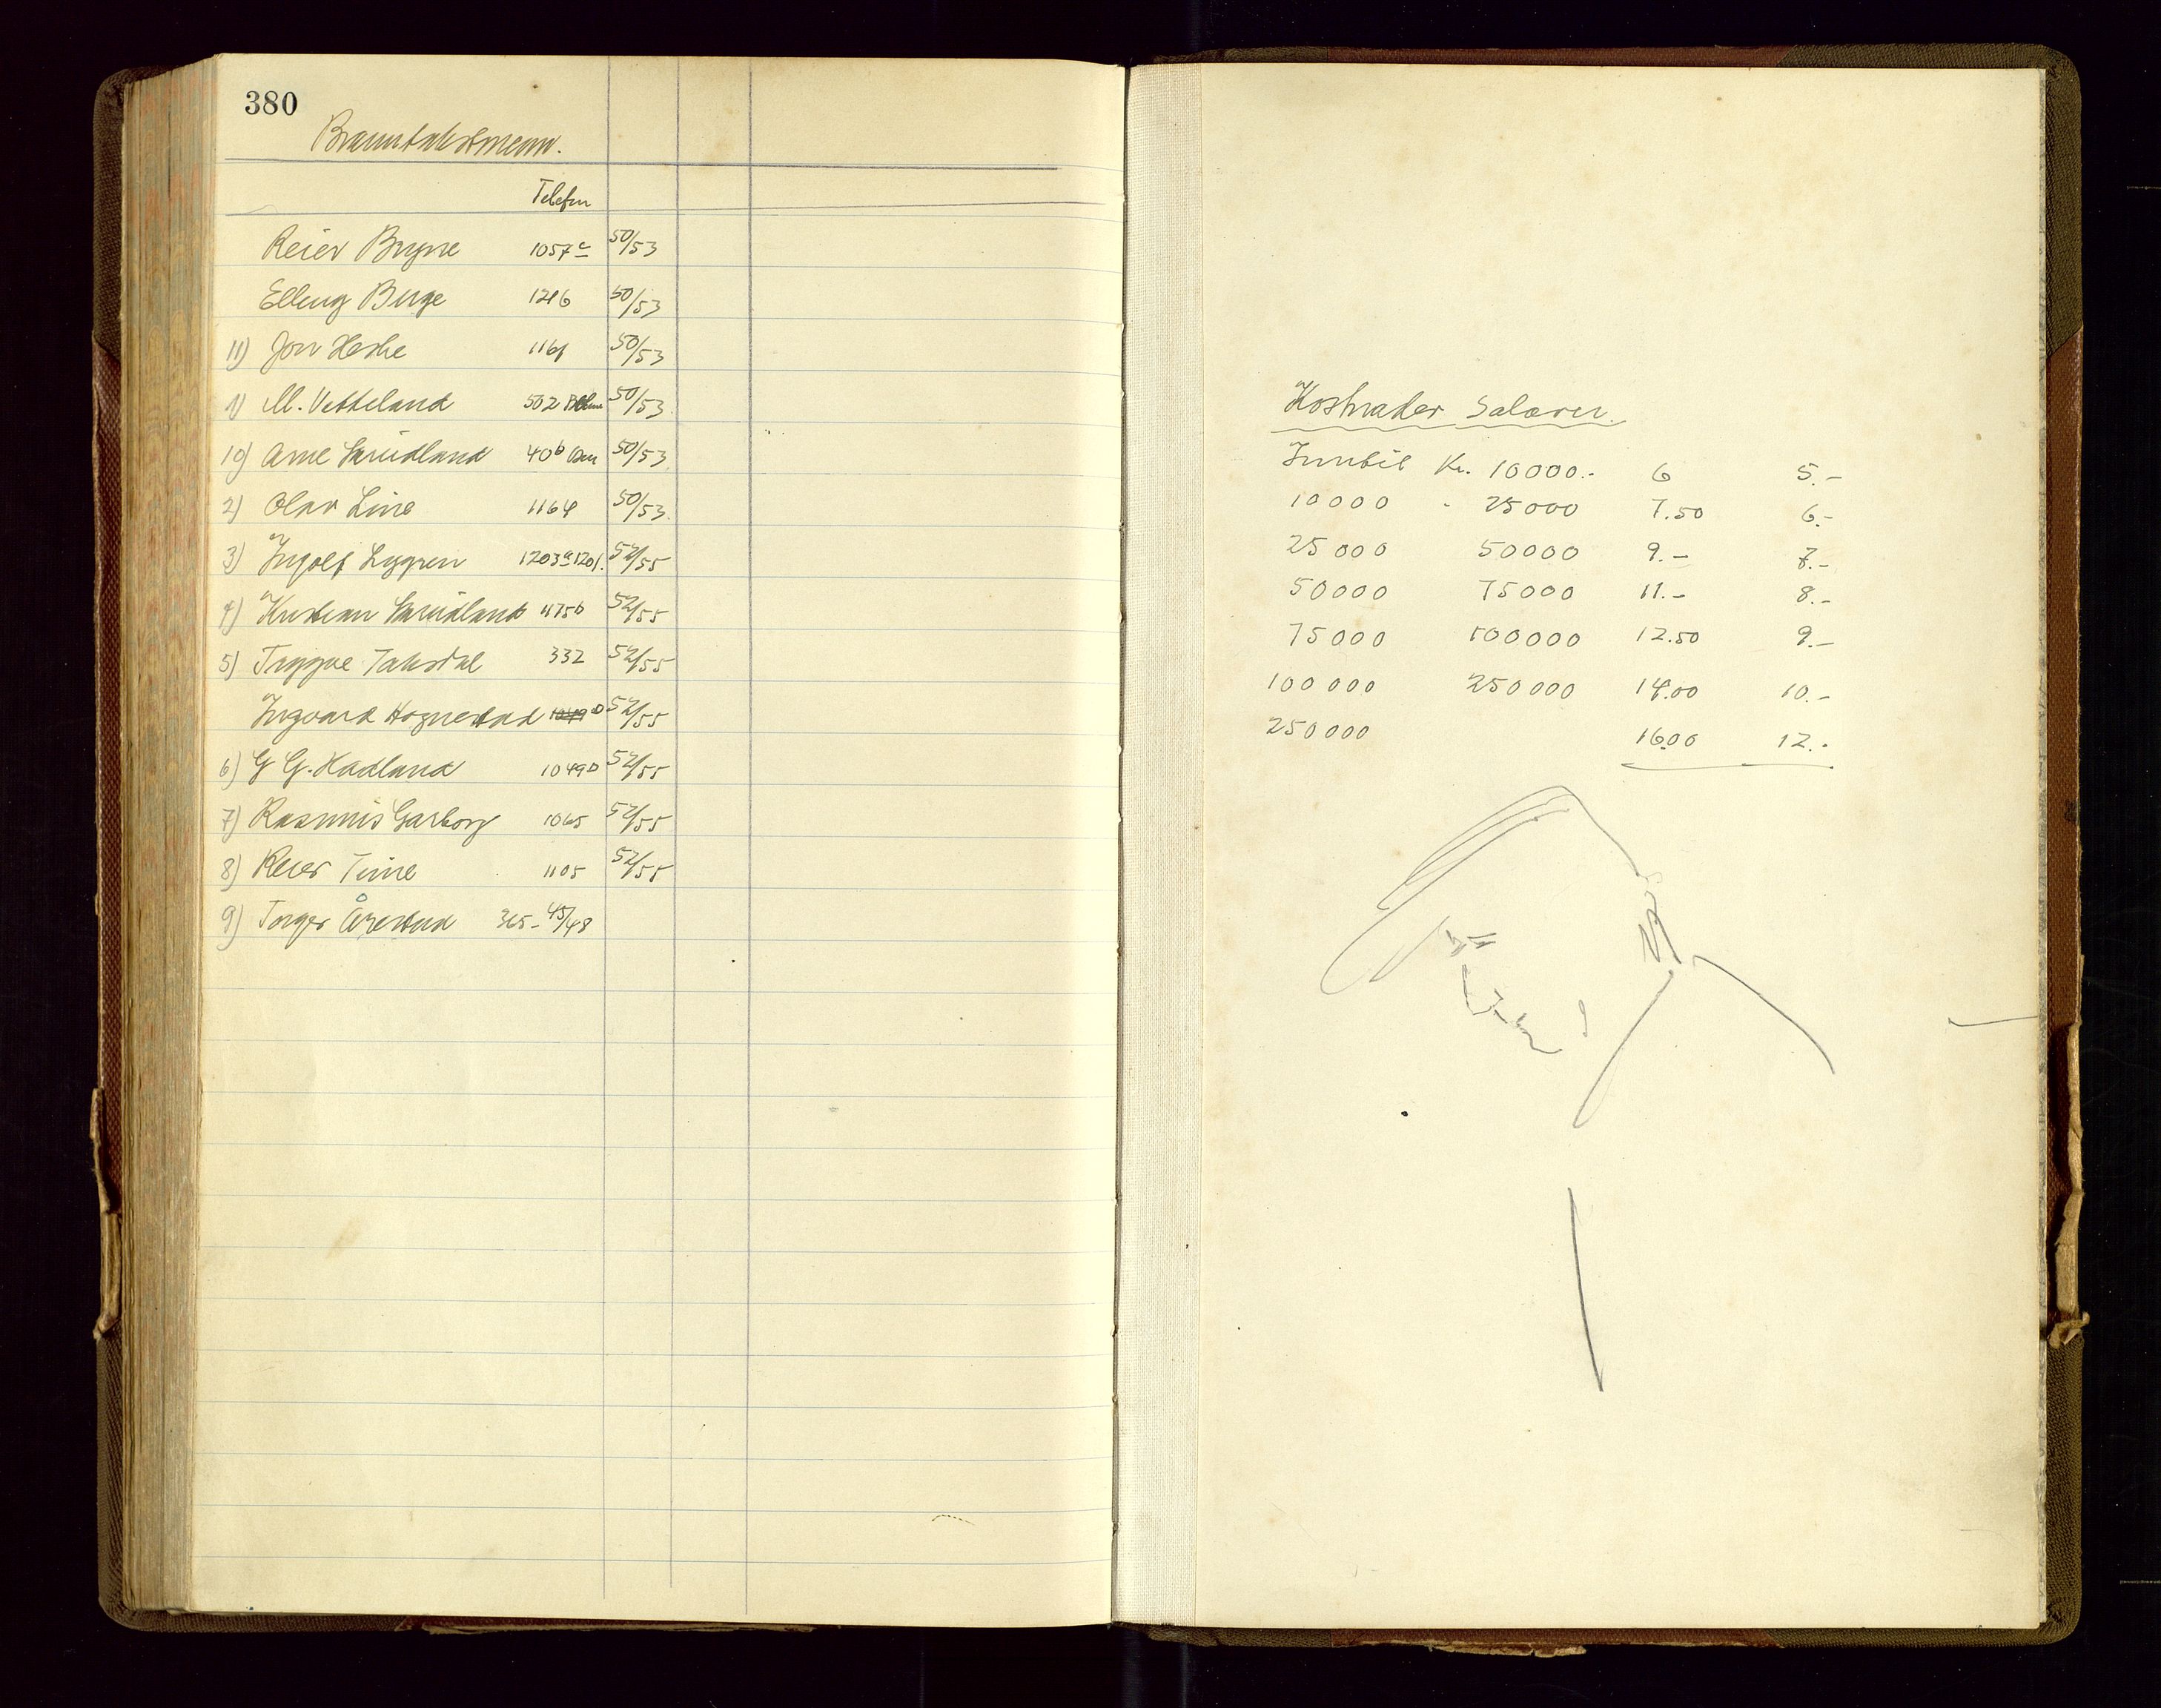 380
Branntakstmenn.
Telefon
Reier Bryne 1057c 50/53
Elling Berge 1216 50/53
11) Jon Heske 1161 50/53
1) M. Vetteland 502 50/53
10) Arne Smidland 40b 50/53
2) Olav Line 1164 50/53
3) Ingolf Lygren 1203a 1201. 52/55
4) Kristian Smidland 1175b 52/55
5) Tryggve Taksdal 332 52/55
Ingvard Hognestad 1049D 52/55
6) G G. Hadland 1049D 52/55
7) Rasmus Garborg 1065 52/55
8) Reier Time 1105 52/55
9) Torger Årestad 365- 45/48
Kostnader Salærer.
Inntil Kr. 10000.- 6 5.-
10000 - 25000 7.50 6.-
25000 50000 9.- 7.-
50000 75000 11.- 8.-
75000 100000 12.50 9.-
100000 250000 14.00 10.-
250000 16.00 12.-